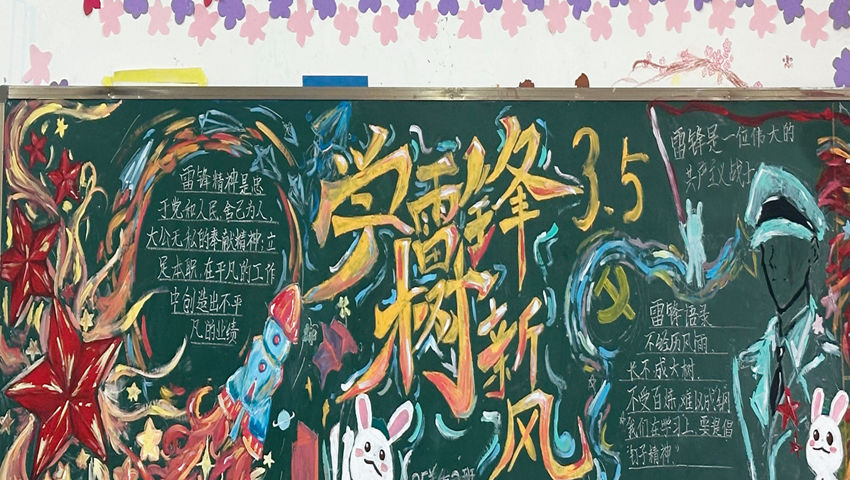 学雷锋
树新风
3.5
雷锋精神是忠
于党和人民、舍己为人、
大公无私的奉献精神；立
足本职、在平凡的工作
中创造出不平
凡的业绩
雷锋是一位伟大的
共产主义战士
雷锋语录
不经历风雨，
长不成大树，
不受百炼，难以成钢
我们在学习上，要提倡
"钉子精神"